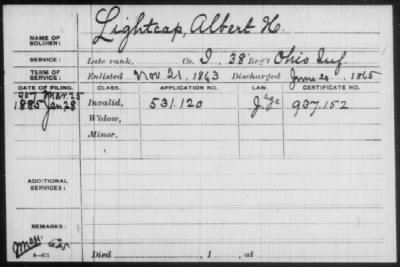 NAME OF SOLDIER: Lightcap, Albert H.
SERVICE: Late rank, Co. I, 38 Reg't Ohio Inf.
TERM OF SERVICE: Enlisted Nov. 21, 1863 Discharged June 20, 1865
DATE OF FILING. CLASS. APPLICATION NO. LAW. CERTIFICATE NO.
907 Mar. 25
1885 Jan 28 Invalid, 531.120 937.152
Widow,
Minor,
ADDITIONAL SERVICES:
REMARKS:
Died , 1 , at